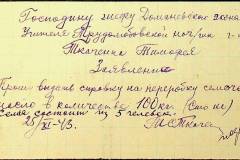 Господину шефу Домановской жанд.
Учителя Трудолюбовской нач/шк
Ткаченко Тимофея
Заявление
Прошу выдать справку на переработку семечек
масло в количестве 100 кг. (сто кг)
Семья состоит из 5 человек.
25/XI-43. Ткаче